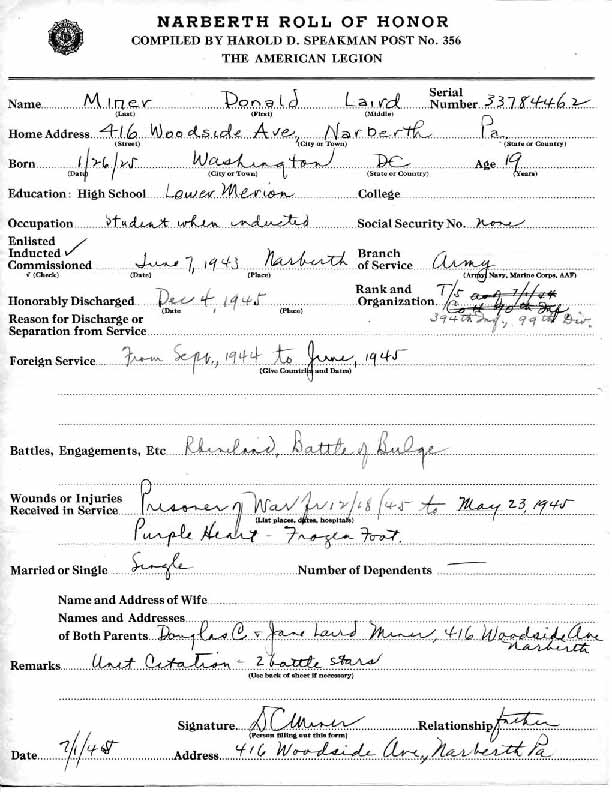 NARBERTH ROLL OF HONOR
COMPILED BY HAROLD D. SPEAKMAN POST No. 356
THE AMERICAN LEGION
Name Miner Donald Laird Serial Number 33784462
(Last) (First) (Middle)
Home Address 416 Woodside Ave, Narberth Pa.
(Street) (City or Town) (State or Country)
Born 1/26/25 Washington DC Age 19
(Date) (City or Town) (State or Country) (Years)
Education: High School Lower Merion College
Occupation Student when inducted Social Security No. none
Enlisted
Inducted ✓
Commissioned June 7, 1943 Narberth Branch of Service Army
√ (Check) (Date) (Place) (Army, Navy, Marine Corps, AAF)
Honorably Discharged Dec 4, 1945 Rank and Organization T/5
(Date) (Place)
394th Inf, 99th Div.
Reason for Discharge or
Separation from Service
Foreign Service From Sept., 1944 to June, 1945
(Give Countries and Dates)
Battles, Engagements, Etc Rhineland, Battle of Bulge
Wounds or Injuries
Received in Service Prisoner of War fr 12/18/45 to May 23, 1945
(List places, dates, hospitals)
Purple Heart - Frozen Foot.
Married or Single Single Number of Dependents —
Name and Address of Wife
Names and Addresses
of Both Parents Douglas C. & Jane Laird Miner, 416 Woodside Ave
Narberth
Remarks Unit Citation - 2 battle stars
(Use back of sheet if necessary)
Signature DC Miner Relationship father
(Person filling out this form)
Date Address 416 Woodside Ave., Narberth Pa